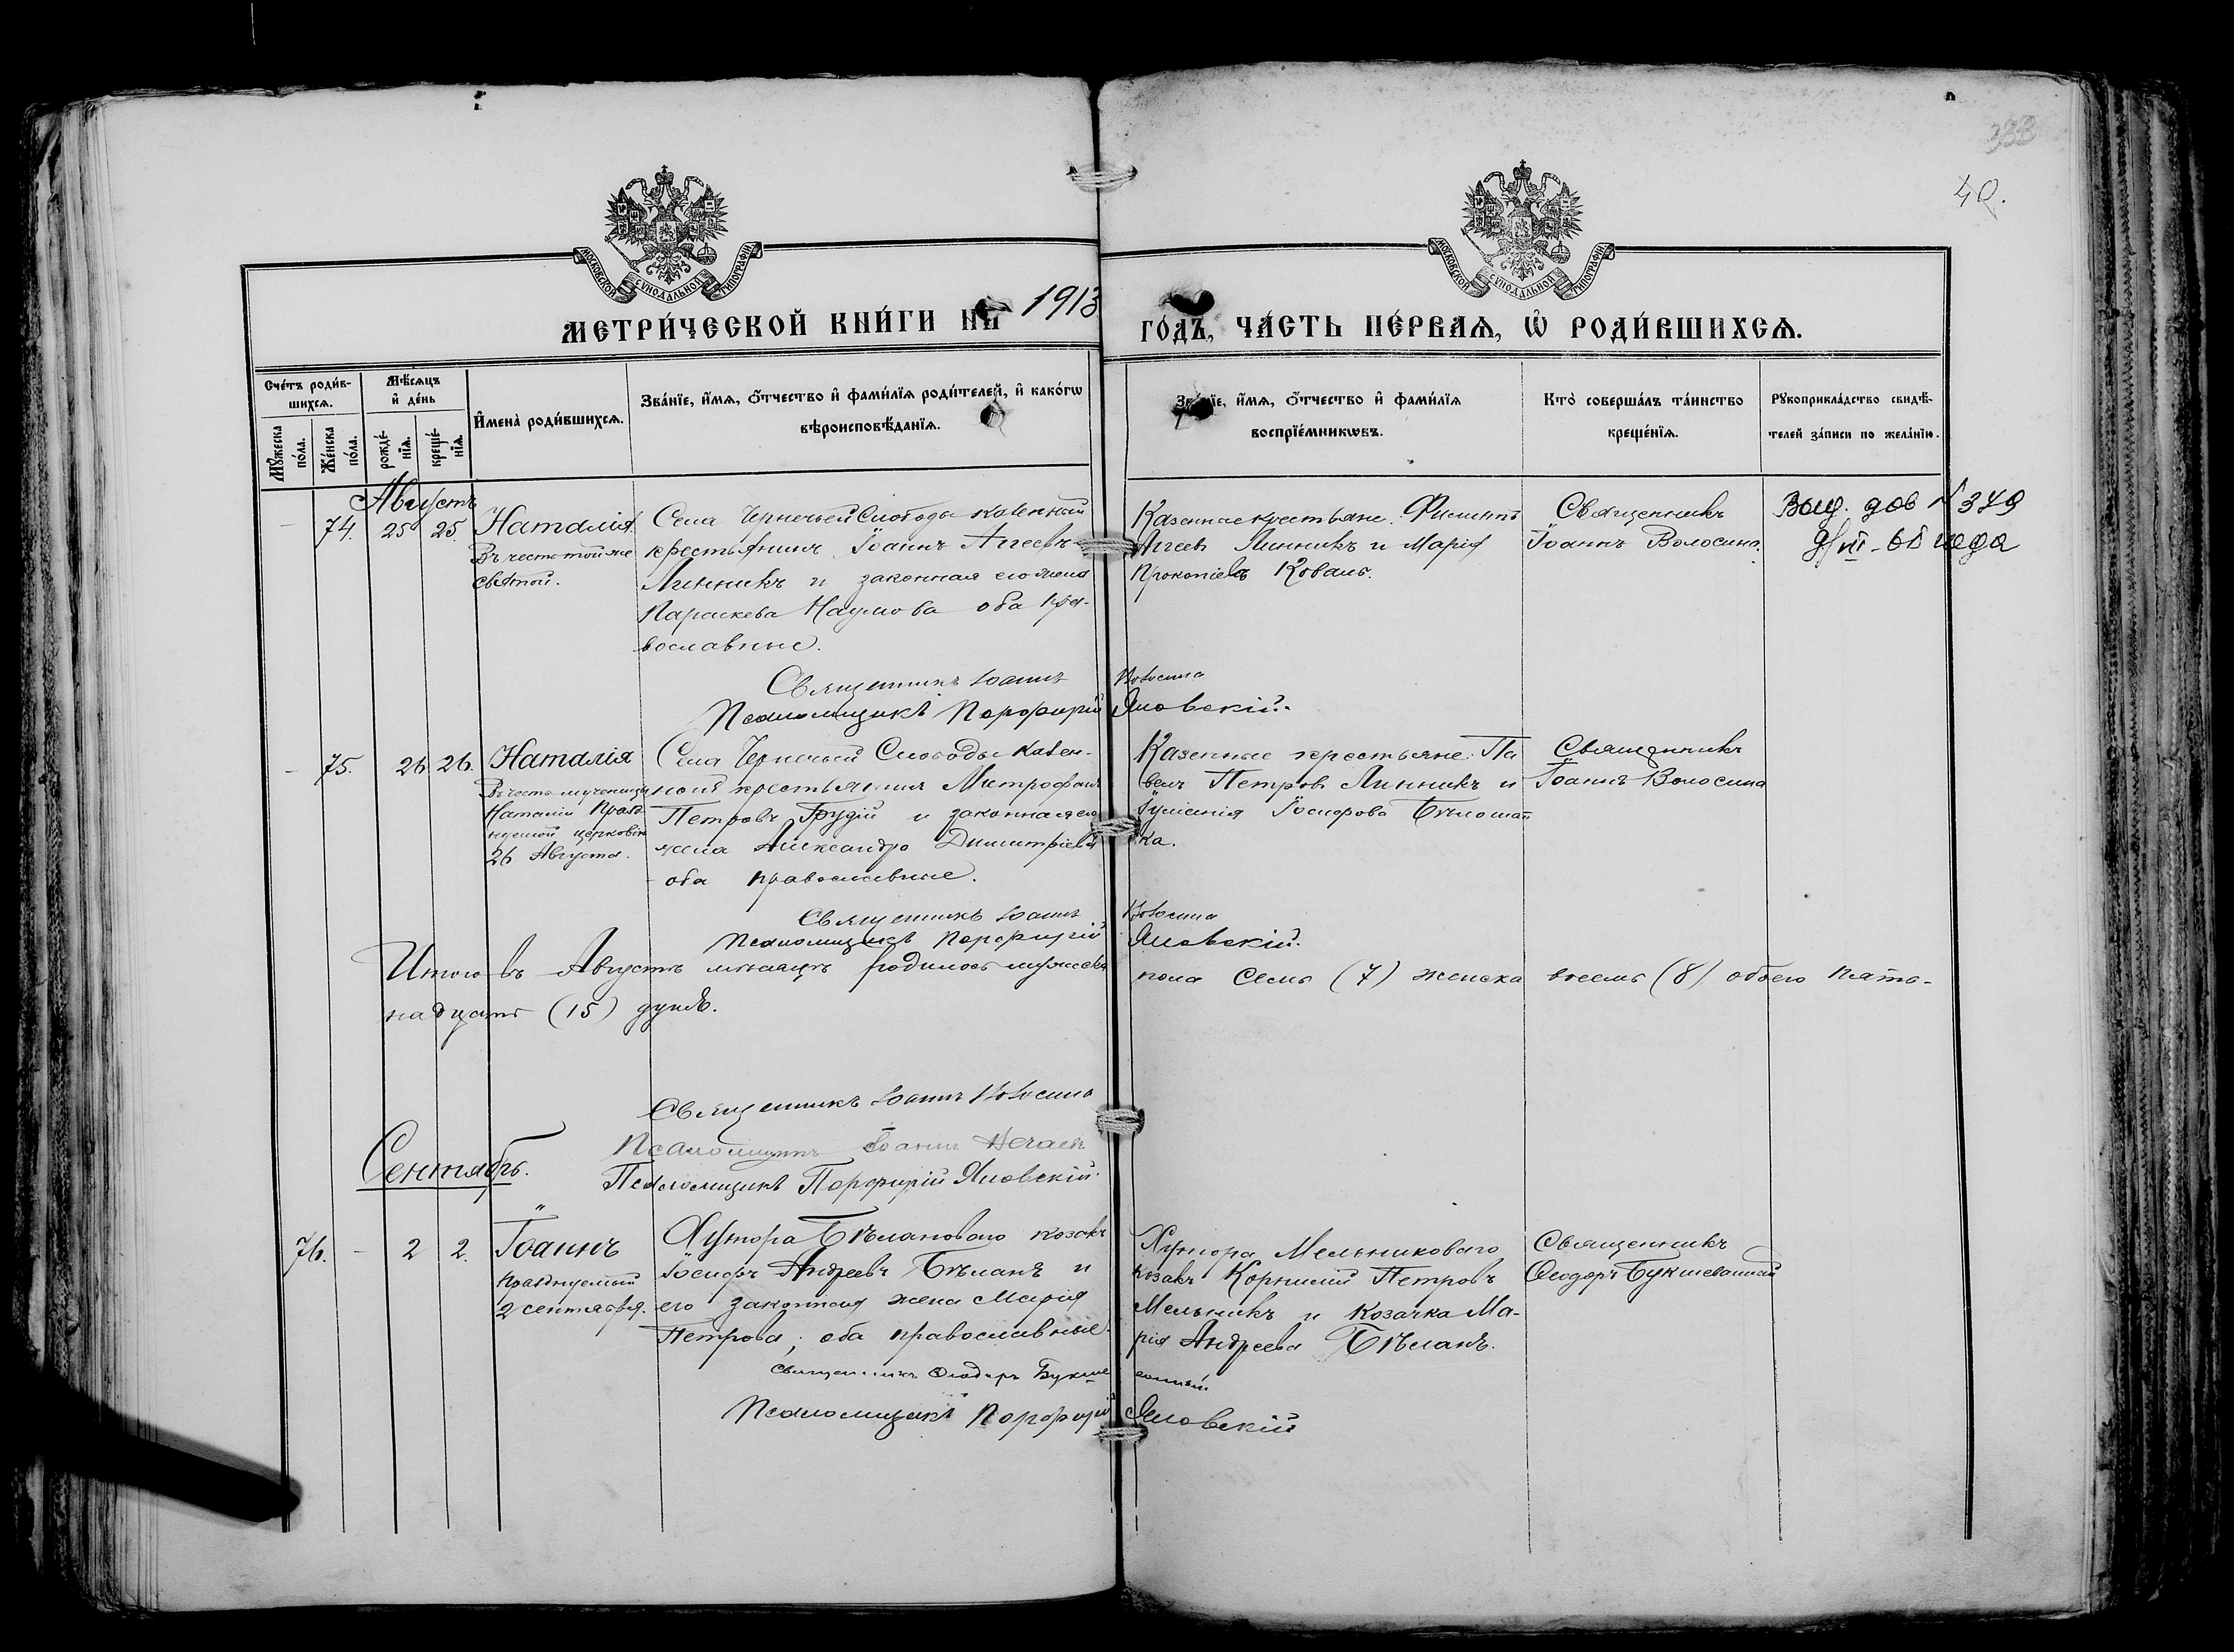 388
40.
МОСКОВСКОЙ СУНОДАЛЬНОЙ ТИПОГРАФІИ
МОСКОВСКОЙ СУНОДАЛЬНОЙ ТИПОГРАФІИ
МЕТРИ́ЧЕСКОЙ КНИ́ГИ НА 1913 ГО́ДЪ, ЧА́СТЬ ПЕ́РВАѦ, Ѽ РОДИ́ВШИХСѦ.
Сче́тъ роди́в-
шихсѧ.
Мꙋ́жеска
по́ла.
Же́нска
по́ла.
Мѣ́сѧцъ
и҆ де́нь
рожде́-
нїѧ.
креще́-
нїѧ.
И҆мена̀ роди́вшихсѧ.
Зва́нїе, и҆́мѧ, ѻ҆́тчество и҆ фами́лїѧ роди́телей, и҆ како́гѡ
вѣроисповѣ́данїѧ.
Зва́нїе, и҆́мѧ, ѻ҆́тчество и҆ фами́лїѧ
воспрїе́мникѡвъ.
Кто̀ соверша́лъ та́инство
креще́нїѧ.
Рꙋкоприкла́дство свидѣ́-
телей за́писи по жела́нїю.
Августъ
- 74. 25 25.
Наталія
Въ честь той же
святой.
Села Чернечьей Слободы казенный
крестьянинъ Іоаннъ Агеевъ
Линникъ и законная его жена
Параскева Наумова оба пра-
вославные.
Казенные крестьяне. Филиппъ
Агеевъ Линникъ и Марія
Прокопіева Коваль.
Священникъ
Іоаннъ Волосина.
Выд. дов N 349
Священникъ Іоаннъ Волосина
Псаломщикъ Порфирій Яновскій.
- 75. 26 26.
Наталія
Въ честь мученицы
Наталіи празд
нуемой церковію
26 Августа.
Села Чернечьей Слободы казен-
ной крестьянинъ Митрофанъ
Петровъ Грудій и законная его
жена Александра Димитріева
оба православные.
Казенные крестьяне: Па
велъ Петровъ Линникъ и
Іуліанія Іосифова Бѣлошап
ка.
Священникъ
Іоаннъ Волосина
Священникъ Іоаннъ Волосина
Псаломщикъ Порфирій Яновскій.
Итого въ Августѣ мѣсяцѣ родилось мужеска пола Семь (7) женска восемь (8) обоего пять-
надцать (15) душъ.
Священникъ Іоаннъ Волосина
Псаломщикъ Іоаннъ Нечаевъ
Псаломщикъ Порфирій Яновскій.
Сентябрь.
76. - 2 2.
Іоаннъ
празднуемый
2 сентября.
Хутора Бѣлановаго козакъ
Іосифъ Андреевъ Бѣланъ и
его законная жена Марія
Петрова, оба православные.
Хутора Мельниковаго
козакъ Корнилій Петровъ
Мельникъ и козачка Ма-
рія Андреева Бѣланъ.
Священникъ
Ѳеодоръ
Священникъ Ѳеодоръ
Псаломщикъ Порфирій Яновскій